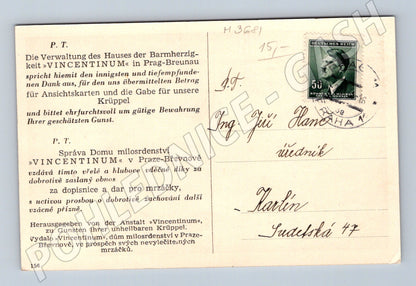 H3681
15,-
P. T.
Die Verwaltung des Hauses der Barmherzig-
keit »VINCENTINUM« in Prag-Breunau
spricht hiemit den innigsten und tiefempfunde-
nen Dank aus, für den uns übermittelten Betrag
für Ansichtskarten und die Gabe für unsere
Krüppel
und bittet ehrfurchtsvoll um gütige Bewahrung
Ihrer geschätzten Gunst.
P. T.
Správa Domu milosrdenství
»VINCENTINUM« v Praze-Břevnově
vzdává tímto vřelé a hluboce vděčné díky za
dobrotivě zaslaný obnos
za dopisnice a dar pro mrzáčky,
s uctivou prosbou o dobrotivé zachování další
vzácné přízně.
Herausgegeben von der Anstalt »Vincentinum«,
zu Gunsten ihrer unheilbaren Krüppel.
Vydalo »Vincentinum«, dům milosrdenství v Praze-
Břevnově, ve prospěch svých nevyléčitelných
mrzáčků.
156
DEUTSCHES REICH
50
PRAHA 1
P.T.
Ing Jiří
úředník
Karlín
Sudetská 47
POHLEDNICE - GASH